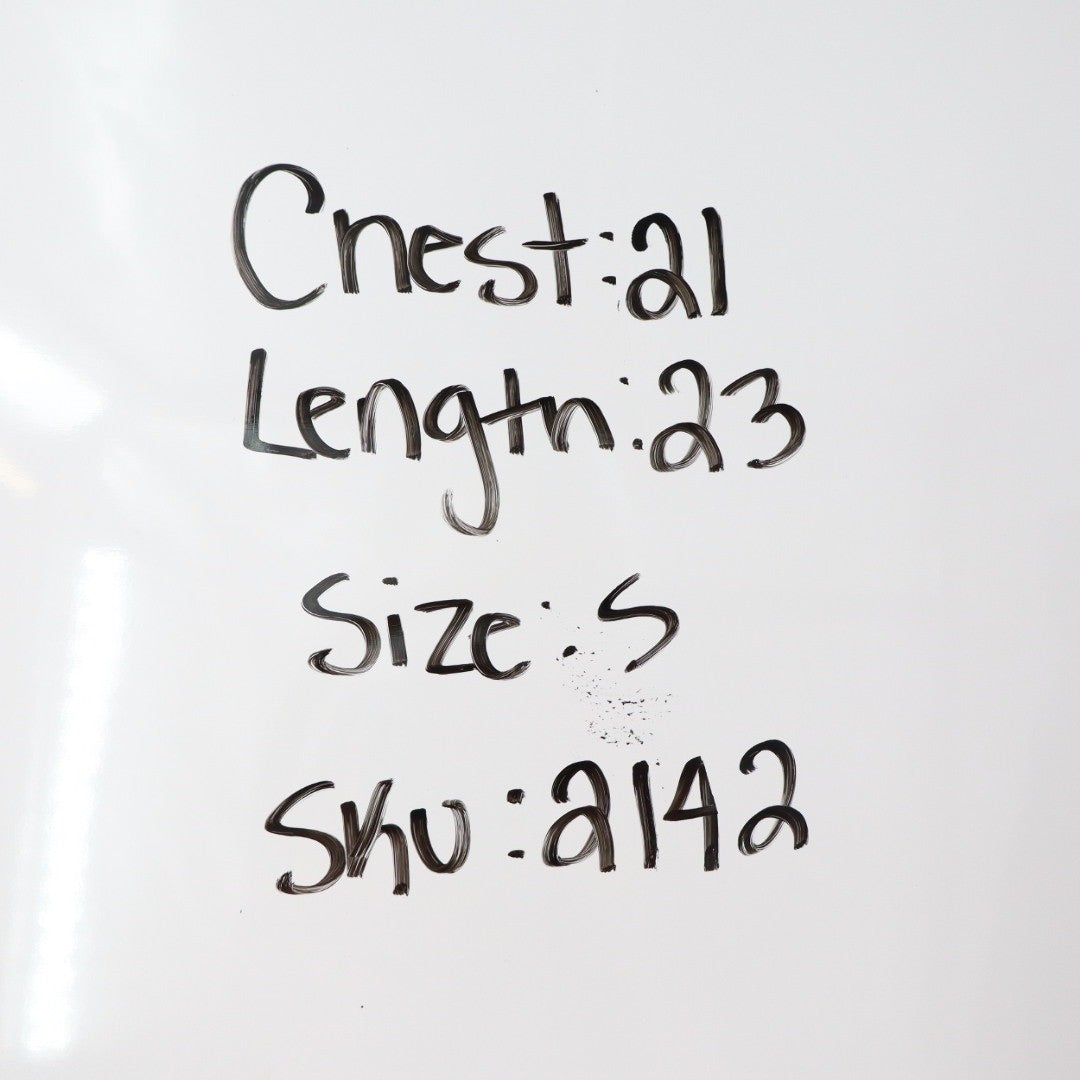 Chest:21
Length:23
Size:S
Sku:2142